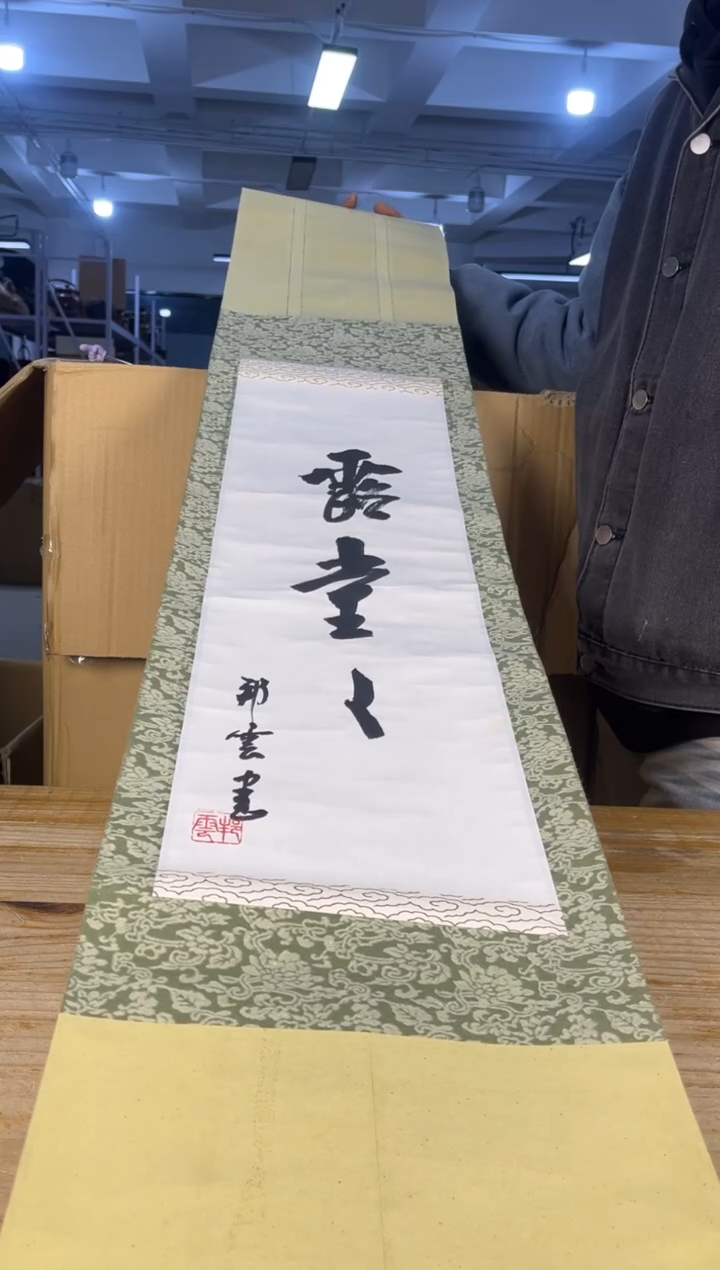 露堂々
邦雲書
邦雲